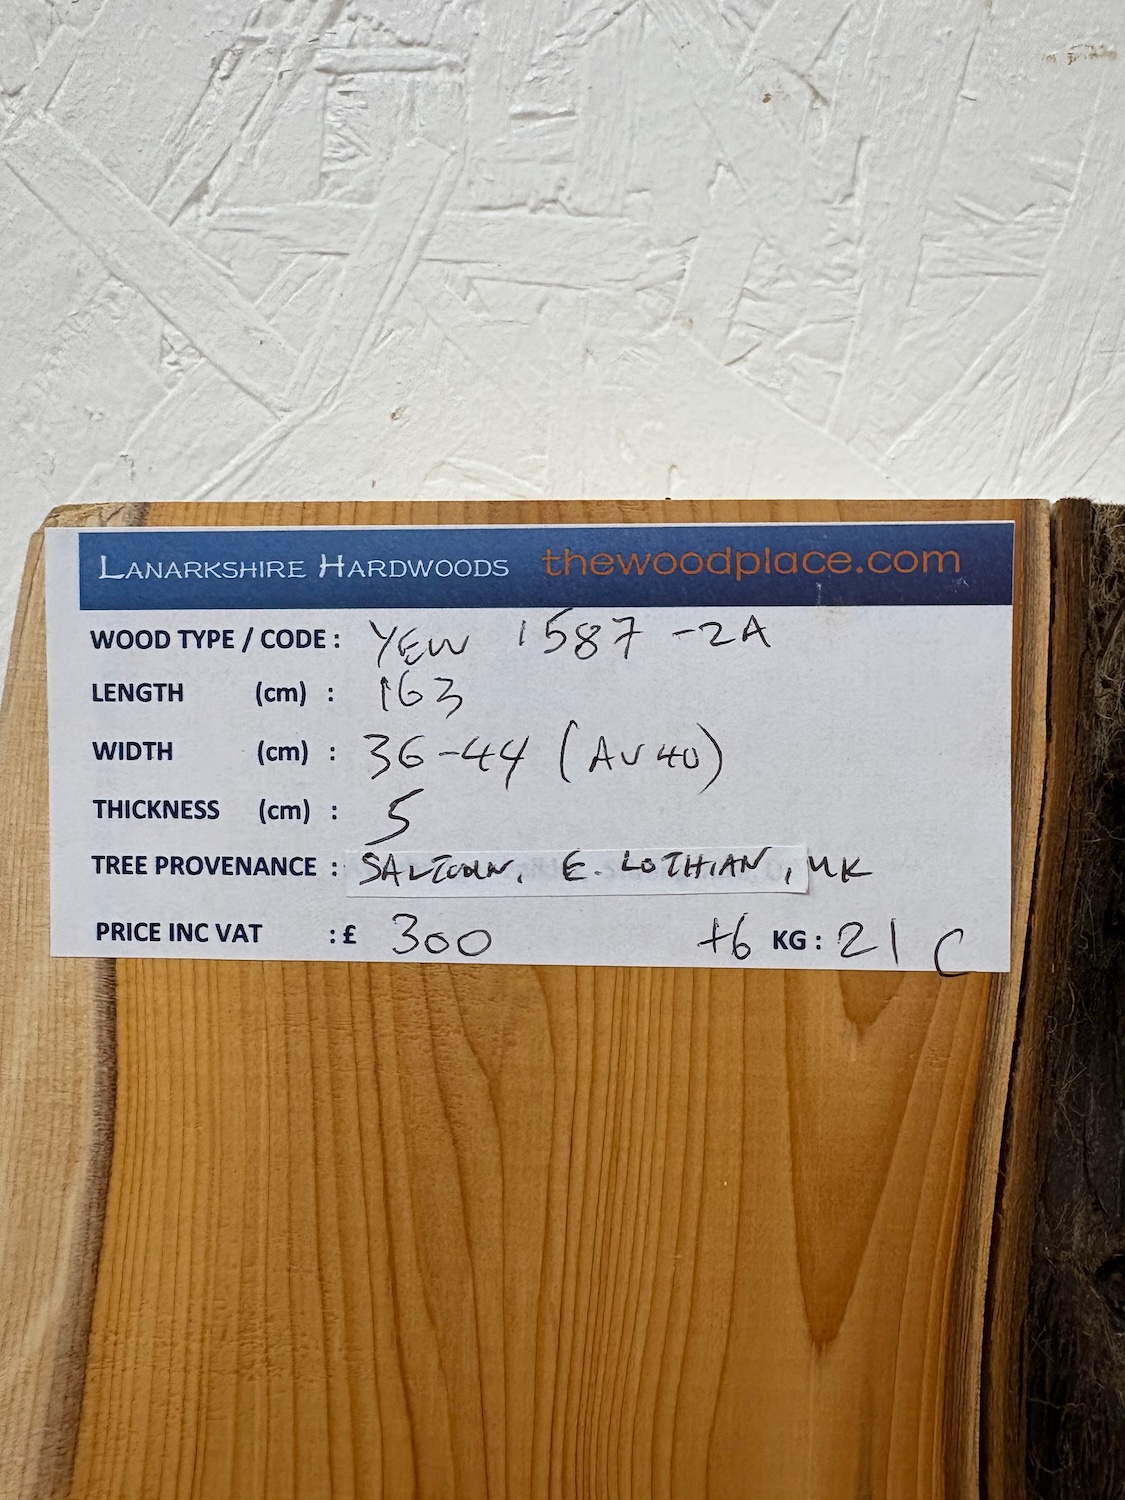 LANARKSHIRE HARDWOODS thewoodplace.com
WOOD TYPE / CODE : YEW 1587 -2A
LENGTH (cm) : 163
WIDTH (cm) : 36-44 (AV 40)
THICKNESS (cm) : 5
TREE PROVENANCE : SALTOUN, E. LOTHIAN, UK
PRICE INC VAT : £ 300 +6 KG : 21 C